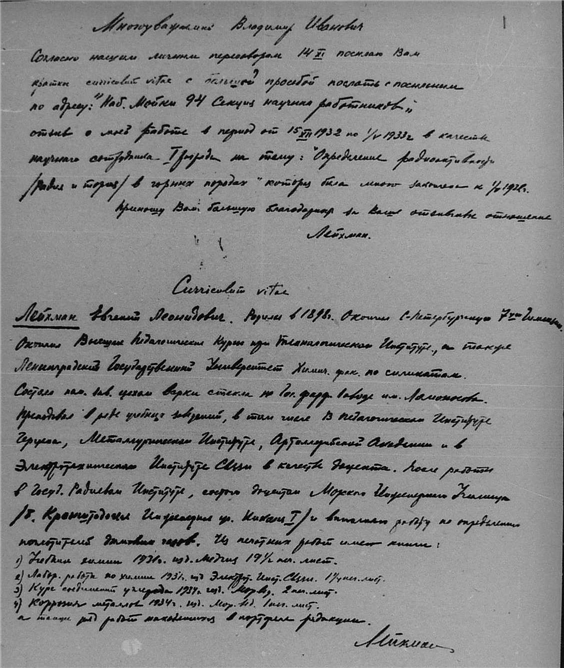 1
Многоуважаемый Владимир Иванович
Согласно нашим личным переговорам 14 XI посылаю Вам
краткий curriculum vitae с большой просьбой послать с посыльным
по адресу: "Наб. Мойки 94 Секция научных работников",
отзыв о моей работе в период от 15 XII 1932 по 1/V 1933г в качестве
научного сотрудника I разряда на тему: "Определение радиоактивности
/Радия и тория/ в горных породах" которая была мною закончена к
Приношу Вам большую благодарность за Ваше отзывчивое отношение
Лейхман.
Curriculum vitae
Лейхман Евгений Леонидович. Родился в 1898г. Окончил С-Петербургскую 7ую Гимназию.
Окончил Высшие Педагогические Курсы при Технологическом Институте, а также
Ленинградский Государственный Университет Химич. фак. по силикатам.
Состоял пом. зав. цехом варки стекла на Гос. фарф. Заводе им. Ломоносова.
Преподавал в ряде учебных заведений, в том числе в Педагогическом Институте
Герцена, Металлургическом Институте, Артиллерийской Академии и в
Электротехническом Институте Связи в качестве доцента. После работы
в Госуд. Радиевом Институте, состою доцентом Морского Инженерного Училища
/б. Кронштадтское Инженерное Николая I/ и выполняю работу по определению
поглотителей дымовых газов. Из печатных работ имею книги:
1) Учебник химии 1931г. изд. Медгиз 19 1/2 печ. лист.
2) Лабор. работы по химии 1931г. изд. Электрот. Инст. Связи. печ. лит.
3) Курс соединений углерода 1934г. изд. Мор. 2 печ. лит.
4) Коррозия металлов 1934г. изд. Мор. 1 печ. лит.
а также ряд работ находящихся в портфеле редакции.
Лейхман